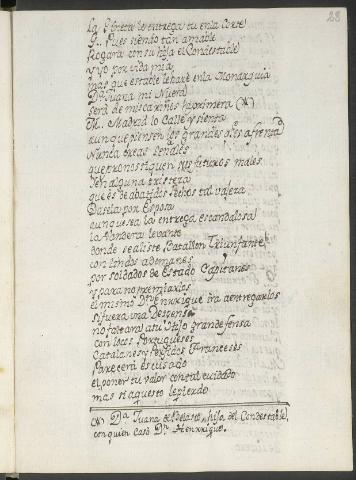 28
La Planeta de entrega tu en la Corte
J. Pues siendo tan amable
Rogara con su hija el Condestable
y yo por vida mia
mas que estable le hare en la Monarquia
Dª Juana mi Nuera
será de mis cariños la primera (N)
M. Madrid lo Calle y sienta
aunque piensen los grandes
Nunca creas señales
que pronostiquen tus futuros males
Ten alguna tristeza
que es de abatidos Pechos tal vajeza
Dasela por Esposa
aunque sea la entrega escandalosa
la Vandera levante
donde se aliste Batallon Triunfante
con lindos ademanes
por soldados de Estado Capitanes
y para no premiarlos
el mismo Dn. Enrrique ira a entregarlos
si fuera una Despensa
no faltara a tu Hijo grande fensa
con locos Portugueses
Catalanes y Perfidos Franceses
Parecera escusado
el poner tu valor con tal cuidado
mas si aquesto le pierdo
(N) Dª Juana de Velasco, hija del Condestable,
con quien casó Dn. Henrrique.